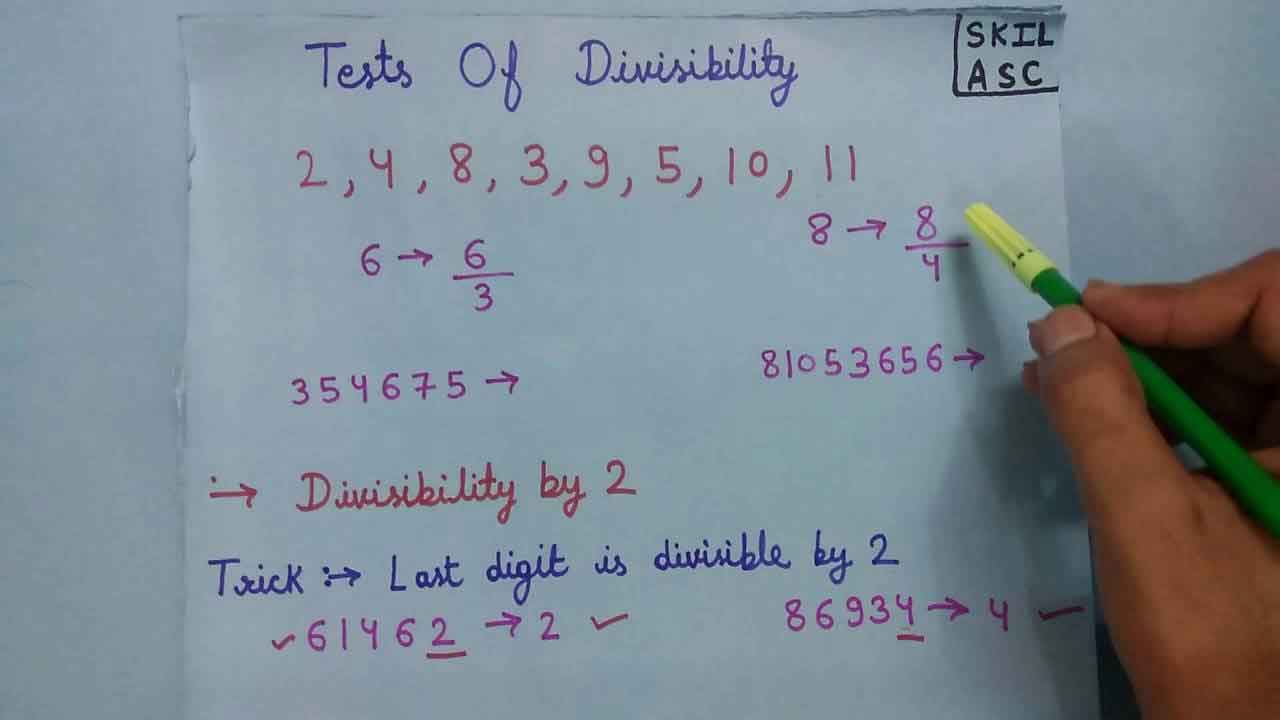 Tests Of Divisibility
SKIL
ASC
2, 4, 8, 3, 9, 5, 10, 11
6 → 6/3
8 → 8/4
354675 →
81053656 →
∴→ Divisibility by 2
Trick :→ Last digit is divisible by 2
✓61462 → 2 ✓
86934 → 4 ✓